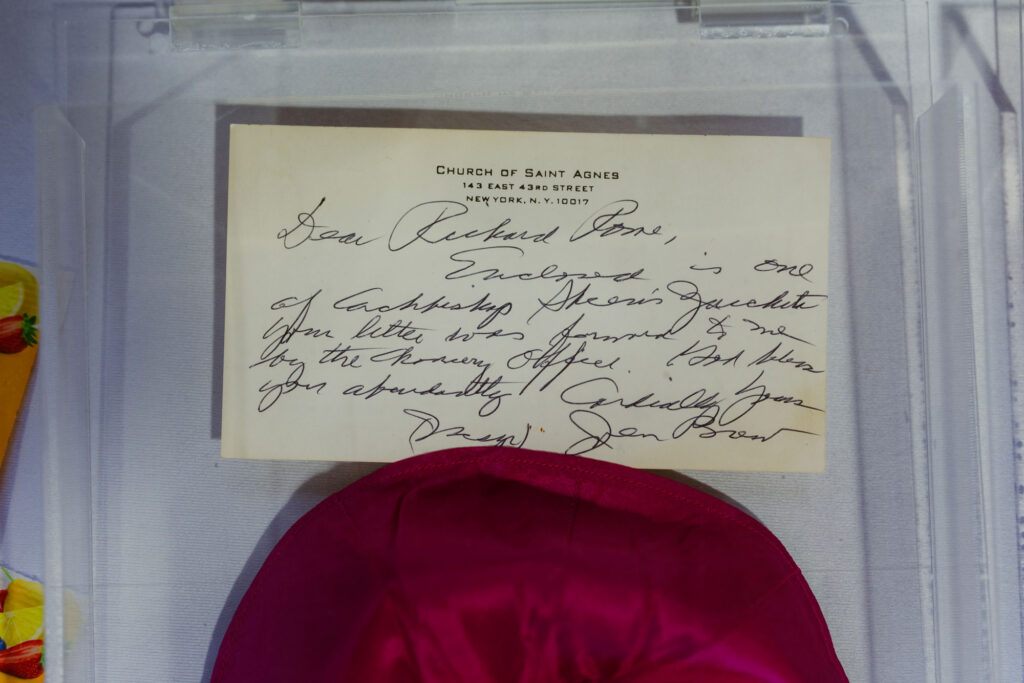 CHURCH OF SAINT AGNES
143 EAST 43RD STREET
NEW YORK, N. Y. 10017
Dear Richard
Enclosed is one
of Archbishop Sheen's Zucchetti
Your letter was to me
by the Office. God bless
you abundantly Cordially Yours
(Msgr)